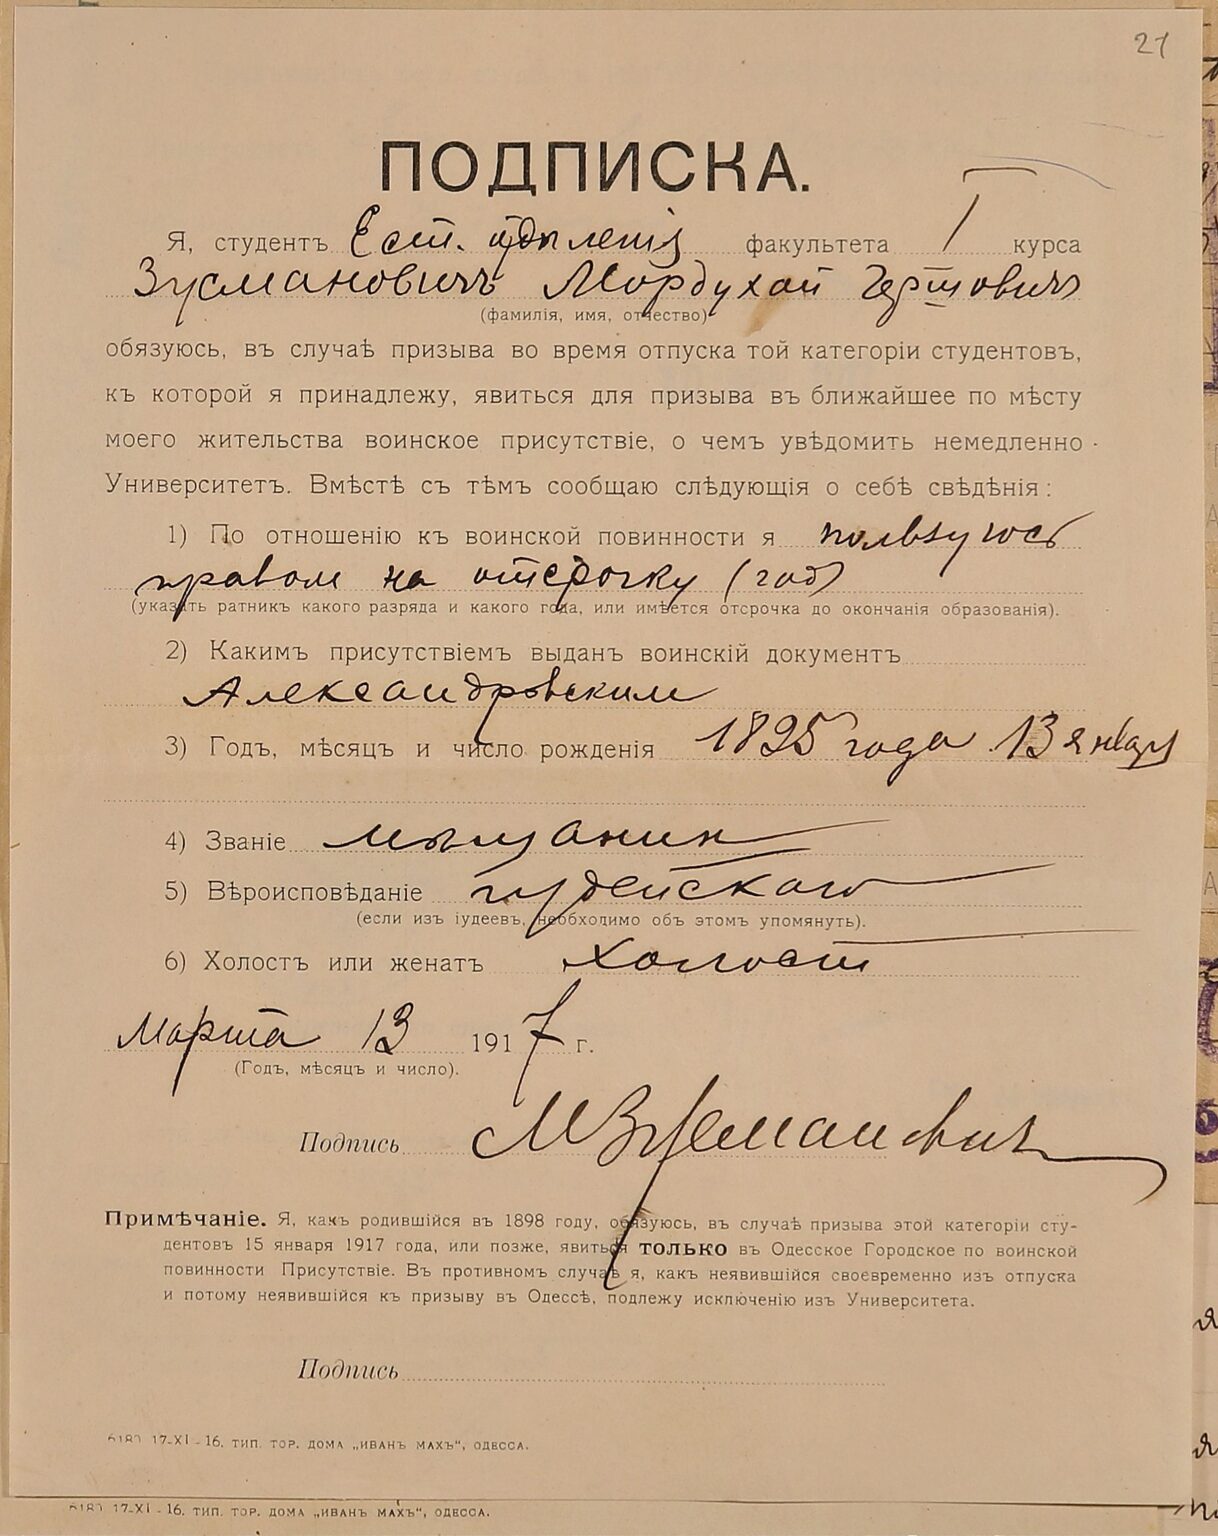 21
ПОДПИСКА.
Я, студентъ Ест. отдѣленія факультета I курса
Зусмановичъ Мордухай Герцовичъ
(фамилія, имя, отчество)
обязуюсь, въ случаѣ призыва во время отпуска той категоріи студентовъ,
къ которой я принадлежу, явиться для призыва въ ближайшее по мѣсту
моего жительства воинское присутствіе, о чемъ увѣдомить немедленно
Университетъ. Вмѣстѣ съ тѣмъ сообщаю слѣдующія о себѣ свѣдѣнія:
1) По отношенію къ воинской повинности я пользуюсь
правом на отсрочку (год)
(указать ратникъ какого разряда и какого года, или имѣется отсрочка до окончанія образованія).
2) Какимъ присутствіемъ выданъ воинскій документъ
Александровским
3) Годъ, мѣсяцъ и число рожденія 1895 года 13 января
4) Званіе мѣщанин
5) Вѣроисповѣданіе іудейскаго
(если изъ іудеевъ, необходимо объ этомъ упомянуть).
6) Холостъ или женатъ холост
Марта 13 1917 г.
(Годъ, мѣсяцъ и число).
Подпись МЗусманович
Примѣчаніе. Я, какъ родившійся въ 1898 году, обязуюсь, въ случаѣ призыва этой категоріи сту-
дентовъ 15 января 1917 года, или позже, явиться только въ Одесское Городское по воинской
повинности Присутствіе. Въ противномъ случаѣ я, какъ неявившійся своевременно изъ отпуска
и потому неявившійся къ призыву въ Одессѣ, подлежу исключенію изъ Университета.
Подпись
17-XI-16. ТИП. ТОР. ДОМА „ИВАНЪ МАХЪ“, ОДЕССА.
17-XI-16. ТИП. ТОР. ДОМА „ИВАНЪ МАХЪ“, ОДЕССА.